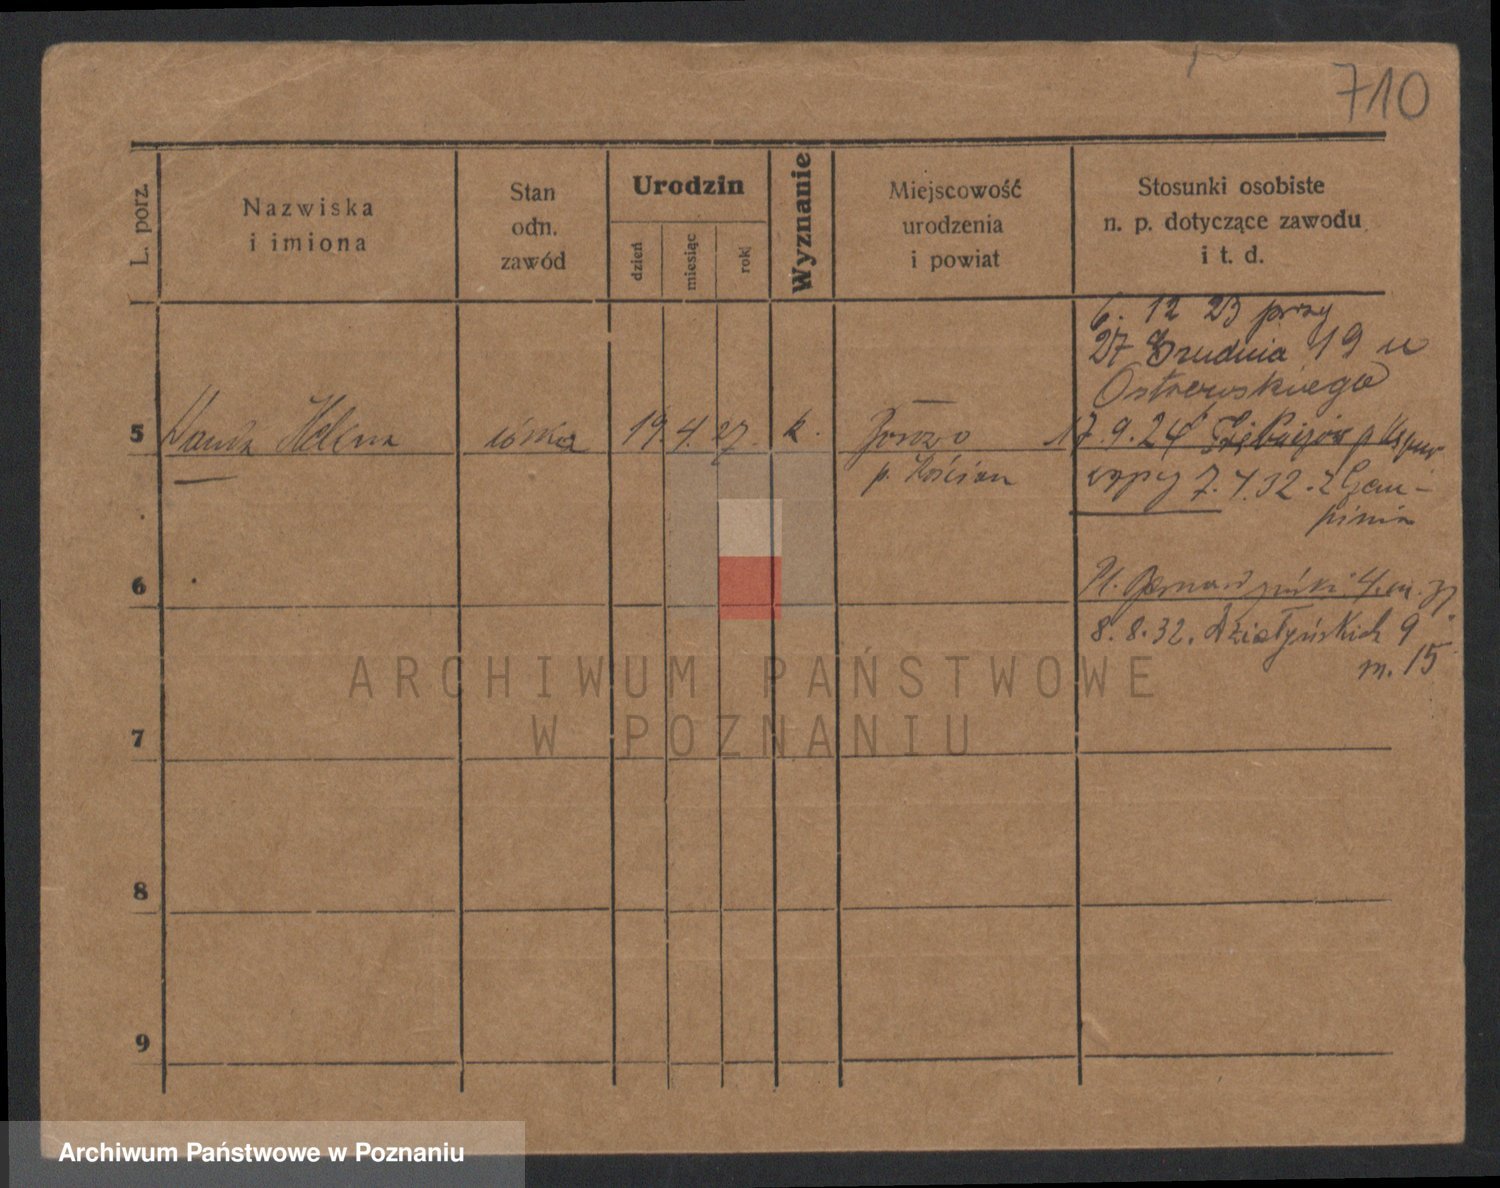 710
L. porz.
Nazwiska
i imiona
Stan
odn.
zawód
Urodzin
dzień
miesiąc
rok
Wyznanie
Miejscowość
urodzenia
i powiat
Stosunki osobiste
n. p. dotyczące zawodu
i t. d.
6. 12 23 przy
27 Grudnia 19 u
Ostrowskiego
5 Wanda Helena córka 19. 4. 27. k.
p. Kościan
17. 9. 24
7. 4. 32. z Gem-
pinia
6
Pl. Bernardyński 4
8. 8. 32. Działyńskich 9
m. 15
ARCHIWUM PAŃSTWOWE
W POZNANIU
7
8
9
Archiwum Państwowe w Poznaniu